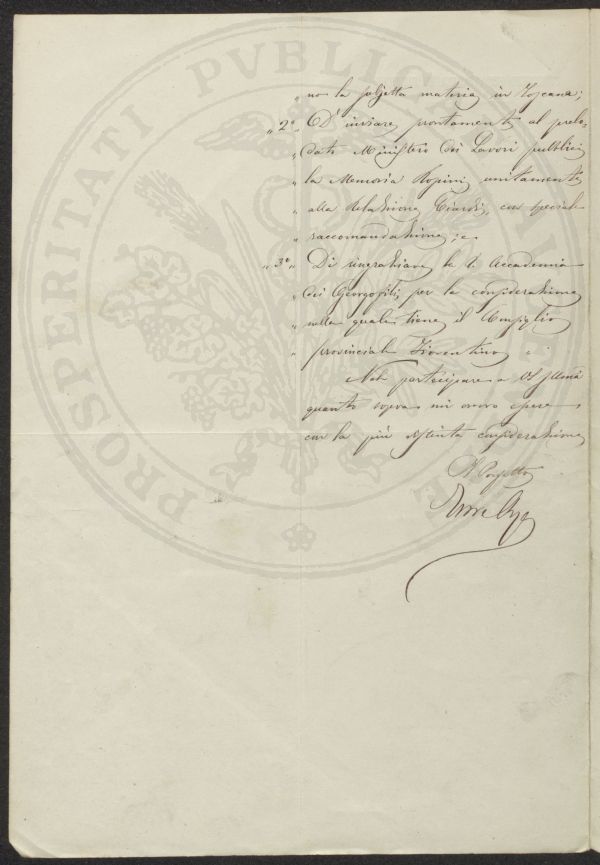 PROSPERITATI PVBLICAE AVGENDAE
„ no la subjetta materia in Toscana;
„ 2º „ D'inviare prontamente al prelo-
„ dato Ministero dei Lavori pubblici
„ la Memoria Rossini unitamente
„ alla Relazione, con speciale
„ raccomandazione; e
„ 3º „ Di ringraziare la R. Accademia
„ dei Georgofili, per la considerazione
„ nella quale tiene il Consiglio
„ provinciale Fiorentino.
Nel partecipare a VS Illma
quanto sopra mi onoro essere
con la più distinta considerazione
Il Prefetto